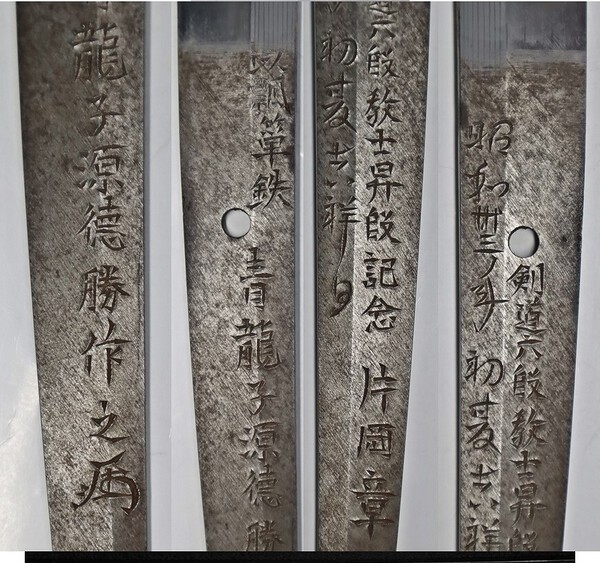 龍子源德勝作之
以瓢箪鉄
青龍子源德勝
道六段教士昇段記念 片岡章
初夏吉祥日
劍道六段教士昇段
昭和卅三ノ年 初夏吉祥